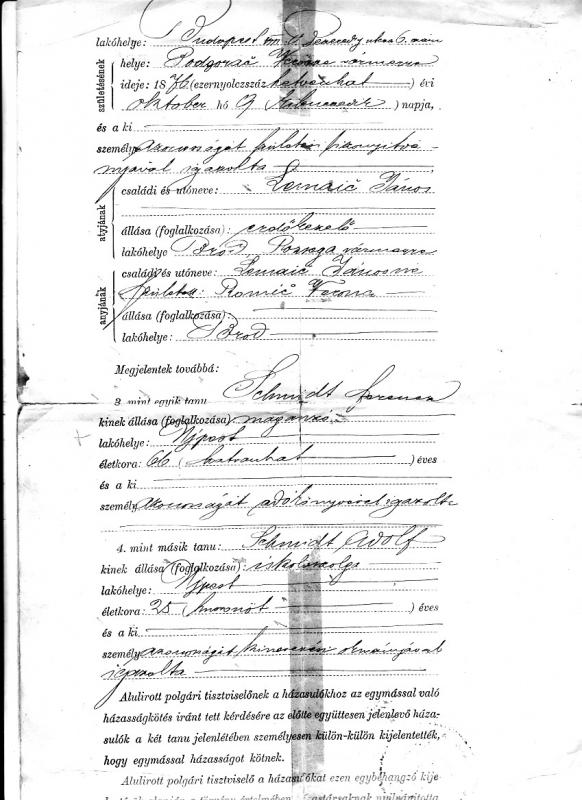 lakóhelye: Budapest VIII. Ker. utca 6. szám
születésének
helye: Podgorač Verőce vármegye
ideje: 1876 (ezernyolcszáz hetvenhat) évi
október hó 9 (kilencedik) napja,
és a ki
személyazonosságát születési bizonyítvá-
nyával igazolta
atyjának
családi és utóneve: Lemaić János
állása (foglalkozása): erdőkezelő
lakóhelye Brod, Pozsega vármegye
anyjának
családi és utóneve: Lemaić Jánosné
született: Romić Verona
állása (foglalkozása):
lakóhelye: Brod
Megjelentek továbbá:
3. mint egyik tanu Schmidt Ferencz
kinek állása (foglalkozása): magánzó
lakóhelye: Ujpest
életkora: 66 (hatvanhat) éves
és a ki
személyazonosságát adókönyvével igazolta
4. mint másik tanu: Schmidt Adolf
kinek állása (foglalkozása): iskolaszolga
lakóhelye: Ujpest
életkora: 25 (huszonöt) éves
és a ki
személyazonosságát kinevezési okmányával
igazolta
Alulirott polgári tisztviselőnek a házasulókhoz az egymással való
házasságkötés iránt tett kérdésére az előtte együttesen jelenlevő háza-
sulók a két tanu jelenlétében személyesen külön-külön kijelentették,
hogy egymással házasságot kötnek.
Alulirott polgári tisztviselő a házasulókat ezen egybehangzó kije-